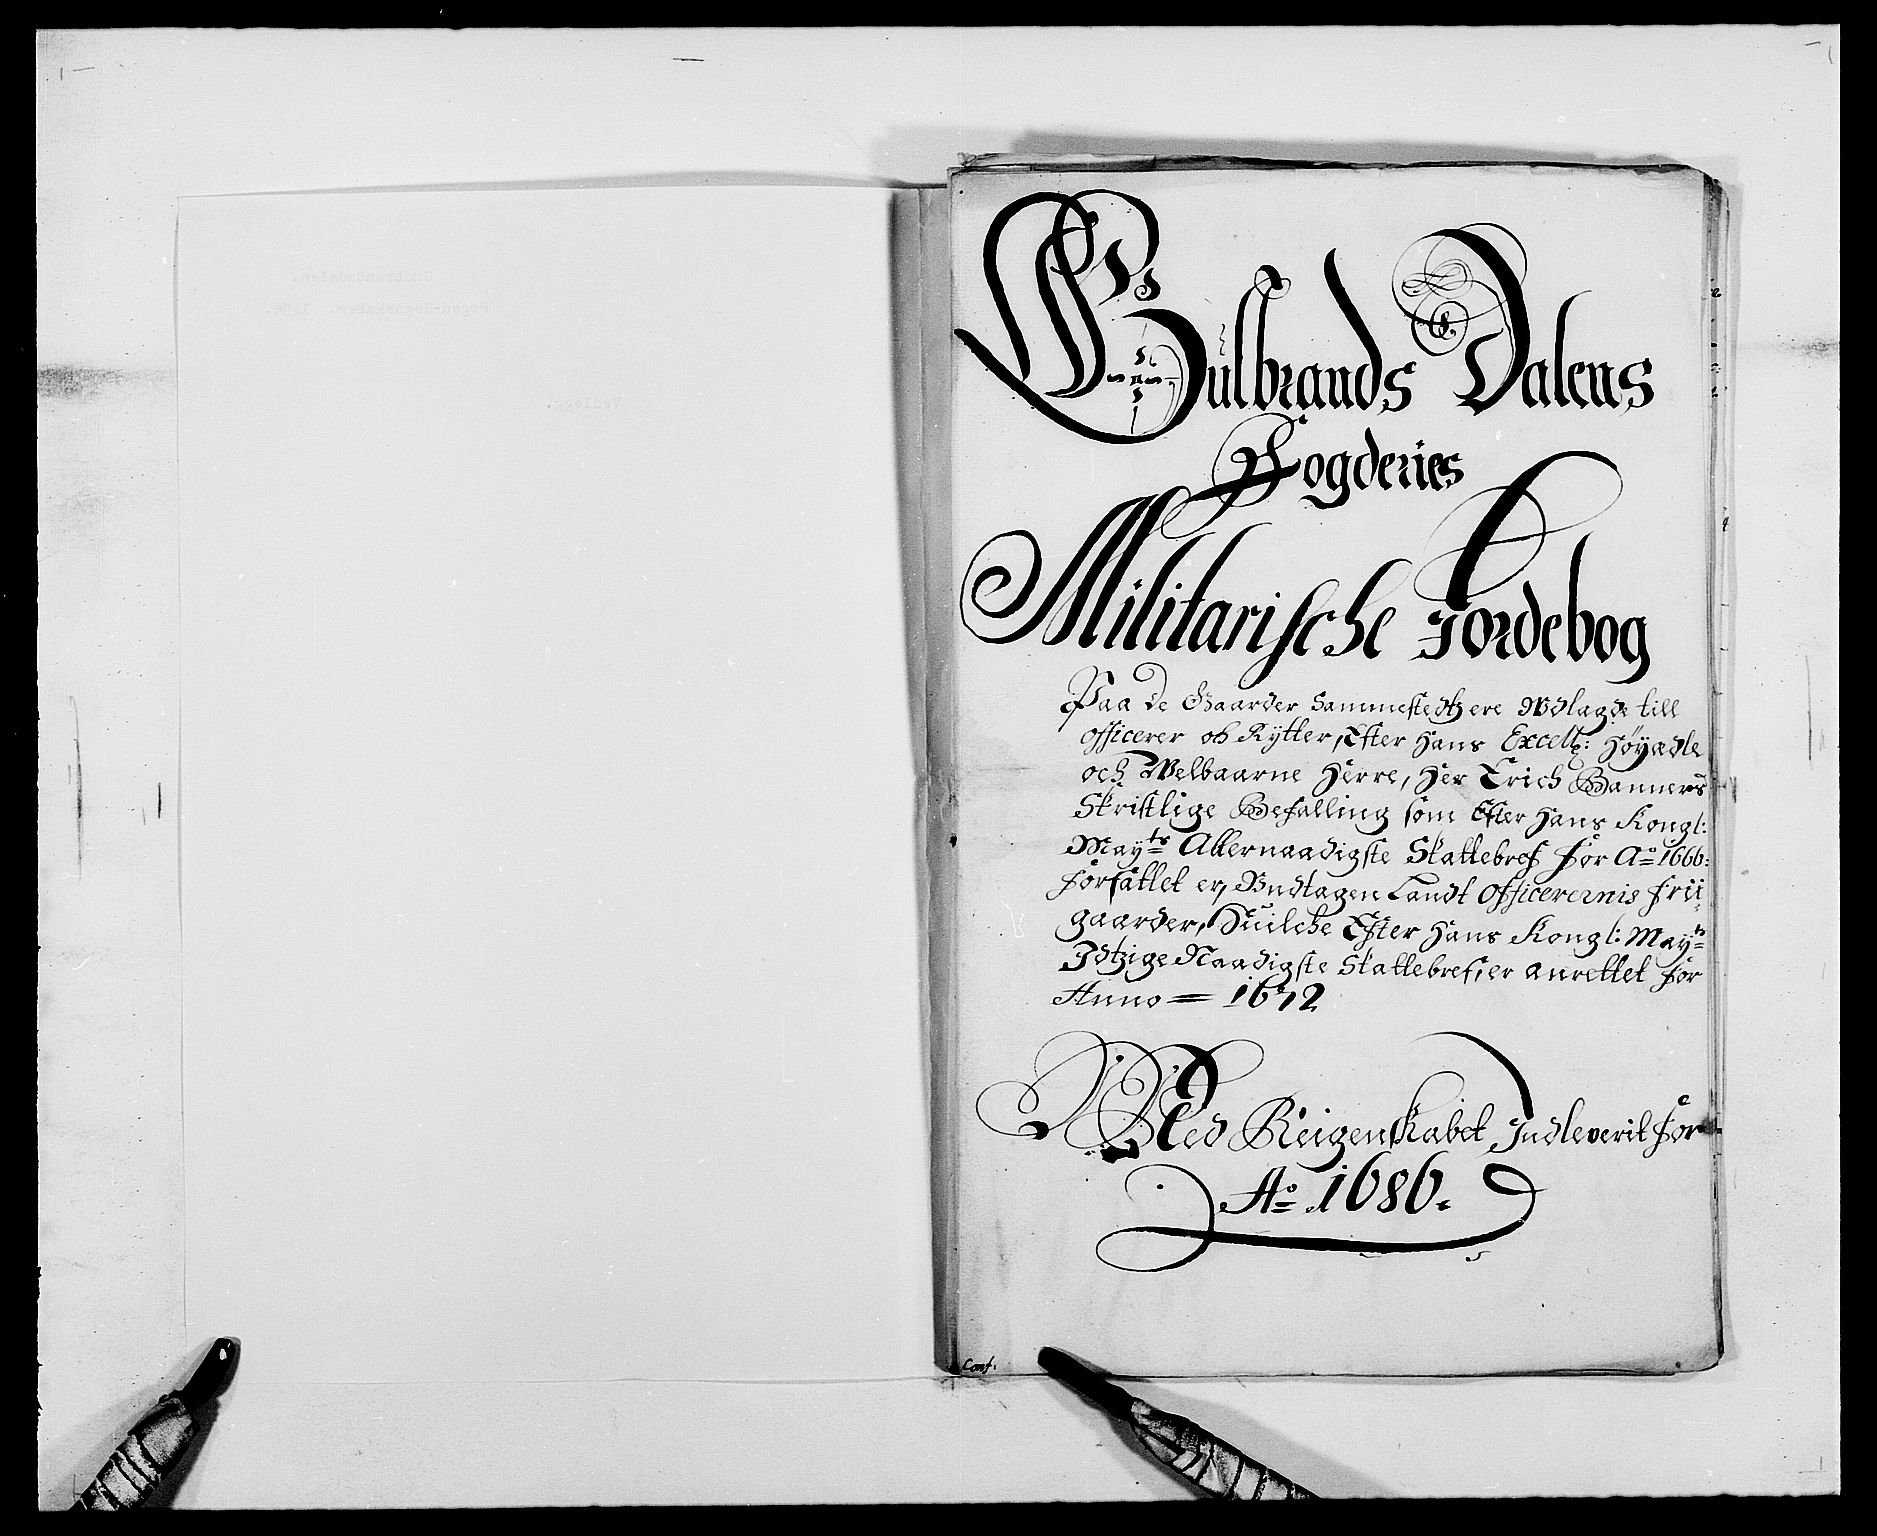 Gulbrands Dalens
Fogderies
Militarische Jordebog
Paa de Gaarder Sammestedtz ere Wdlagde till
officerer och Rÿtter, Efter Hans Excellz: Høÿædle
och Welbaarne Herre, Her Erich Banners
Skriftlige Befalling som Efter Hans Kongl:
Mayts Allernaadigste Skattebref for Ao 1666:
forfattet er, Vndtagen Landt officerernis frii
gaarder, Huilche Efter Hans Kongl: Mayts
Idtzige Naadigste Skattebref, er anrettet for
Anno = 1672
Med Reigenskabet Indleverit for
Ao 1686.
Conf.